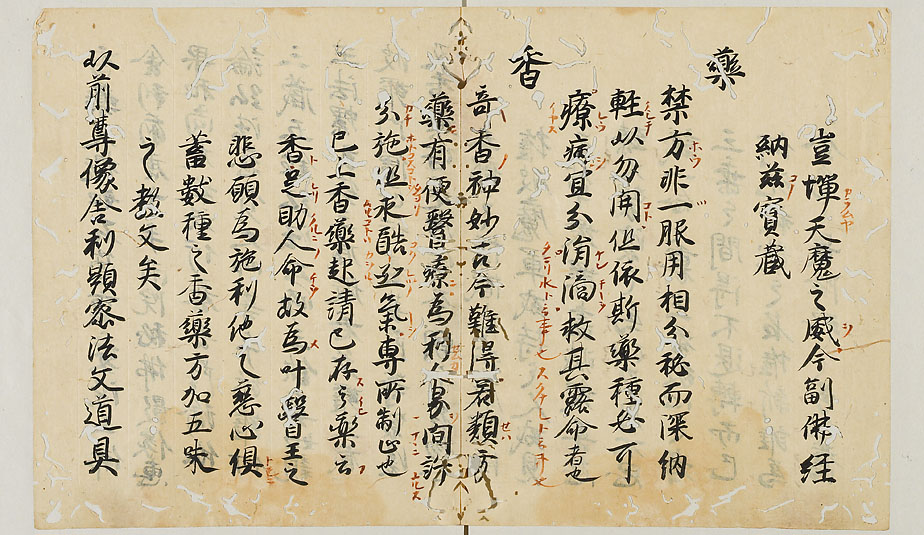 豈憚天魔之威今副佛経
納茲寳蔵
藥
禁方非一服用相分秘而深納
軽以勿開但依斯藥種也可
療病宜分涓滴救其露命者也
香
奇香神妙古今難得若類
藥有便醫療為利人易
分施但求酷烈氣専所制止也
已上香藥起請已存之藥云
香足助人命故為叶醫王之
悲願為施利他之慈心倶
蓄數種之香藥方加五味
之文矣
以前尊像舎利顕密法文道具